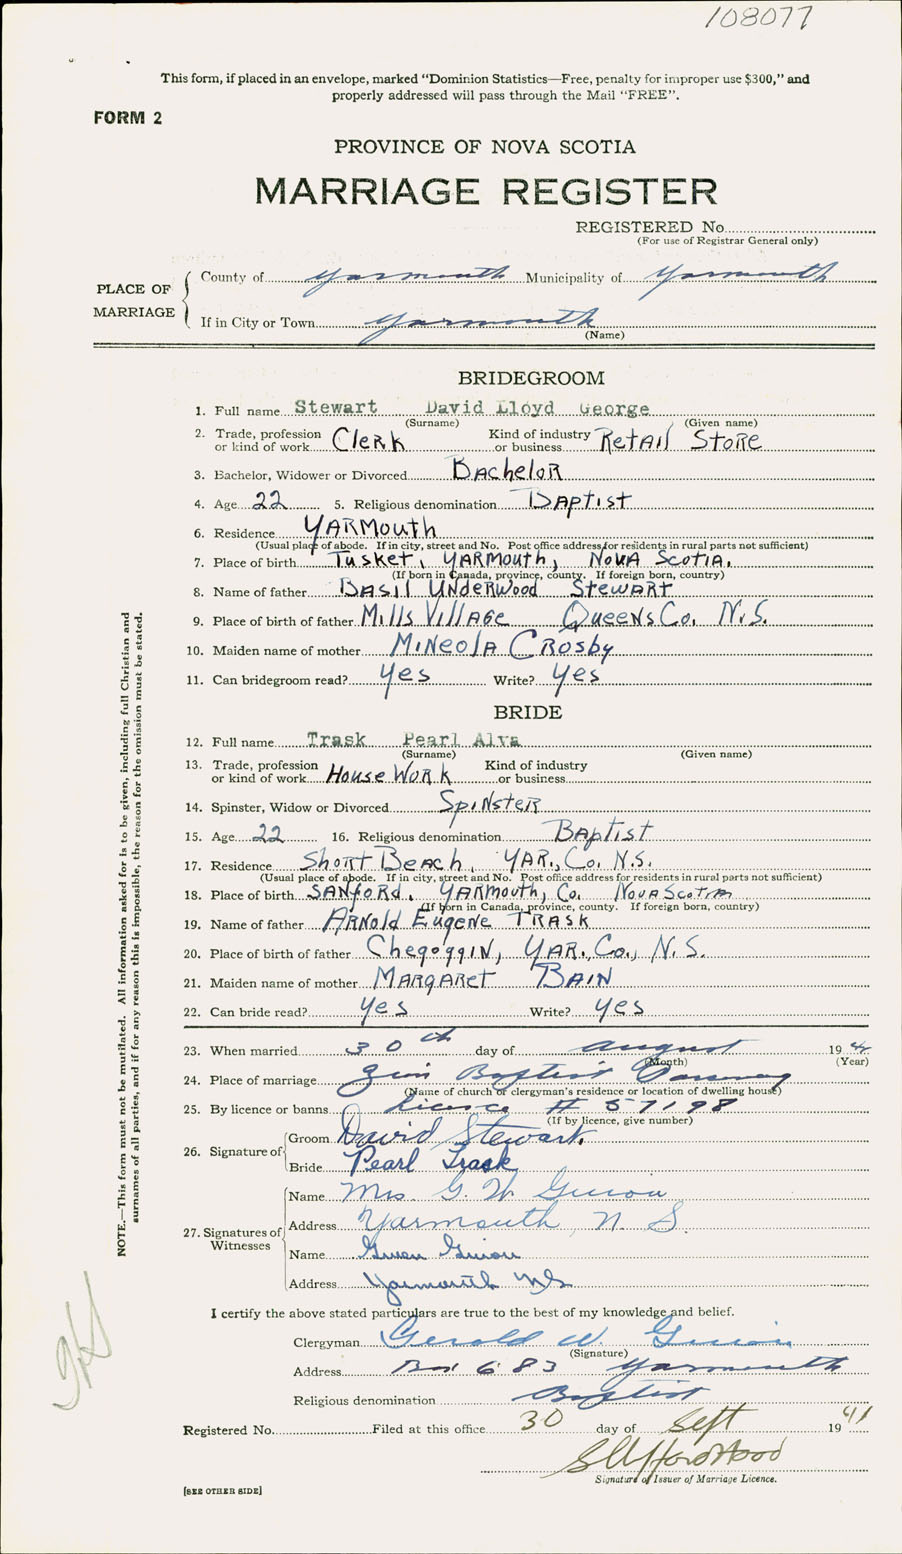 108077
This form, if placed in an envelope, marked “Dominion Statistics—Free, penalty for improper use $300,” and
properly addressed will pass through the Mail “FREE”.
FORM 2
PROVINCE OF NOVA SCOTIA
MARRIAGE REGISTER
REGISTERED No
(For use of Registrar General only)
PLACE OF MARRIAGE
County of Yarmouth Municipality of Yarmouth
If in City or Town Yarmouth
(Name)
BRIDEGROOM
1. Full name Stewart David Lloyd George
(Surname) (Given name)
2. Trade, profession or kind of work Clerk Kind of industry or business Retail Store
3. Bachelor, Widower or Divorced Bachelor
4. Age 22 5. Religious denomination Baptist
6. Residence Yarmouth
(Usual place of abode. If in city, street and No. Post office address for residents in rural parts not sufficient)
7. Place of birth Tusket, Yarmouth, Nova Scotia.
(If born in Canada, province, county. If foreign born, country)
8. Name of father Basil Underwood Stewart
9. Place of birth of father Mills Village Queens Co. N.S.
10. Maiden name of mother Mineola Crosby
11. Can bridegroom read? Yes Write? Yes
BRIDE
12. Full name Trask Pearl Alva
(Surname) (Given name)
13. Trade, profession or kind of work House Work Kind of industry or business
14. Spinster, Widow or Divorced Spinster
15. Age 22 16. Religious denomination Baptist
17. Residence Short Beach, Yar., Co. N.S.
(Usual place of abode. If in city, street and No. Post office address for residents in rural parts not sufficient)
18. Place of birth Sanford, Yarmouth, Co. Nova Scotia
(If born in Canada, province, county. If foreign born, country)
19. Name of father Arnold Eugene Trask
20. Place of birth of father Chegoggin, Yar., Co., N.S.
21. Maiden name of mother Margaret Bain
22. Can bride read? Yes Write? Yes
23. When married 30th day of August 19
(Month) (Year)
24. Place of marriage Zion Baptist Parsonage
(Name of church or clergyman's residence or location of dwelling house)
25. By licence or banns Licence # 57198
(If by licence, give number)
26. Signature of
Groom David Stewart.
Bride Pearl Trask
27. Signatures of Witnesses
Name Mrs. G. W. Guiou
Address Yarmouth, N. S.
Name Gwen Guiou
Address Yarmouth NS
I certify the above stated particulars are true to the best of my knowledge and belief.
Clergyman Gerald W. Guiou
(Signature)
Address Box 683 Yarmouth
Religious denomination Baptist
Registered No. Filed at this office 30 day of Sept 1941
Signature of Issuer of Marriage Licence.
[SEE OTHER SIDE]
NOTE.—This form must not be mutilated. All information asked for is to be given, including full Christian and
surnames of all parties, and if for any reason this is impossible, the reason for the omission must be stated.